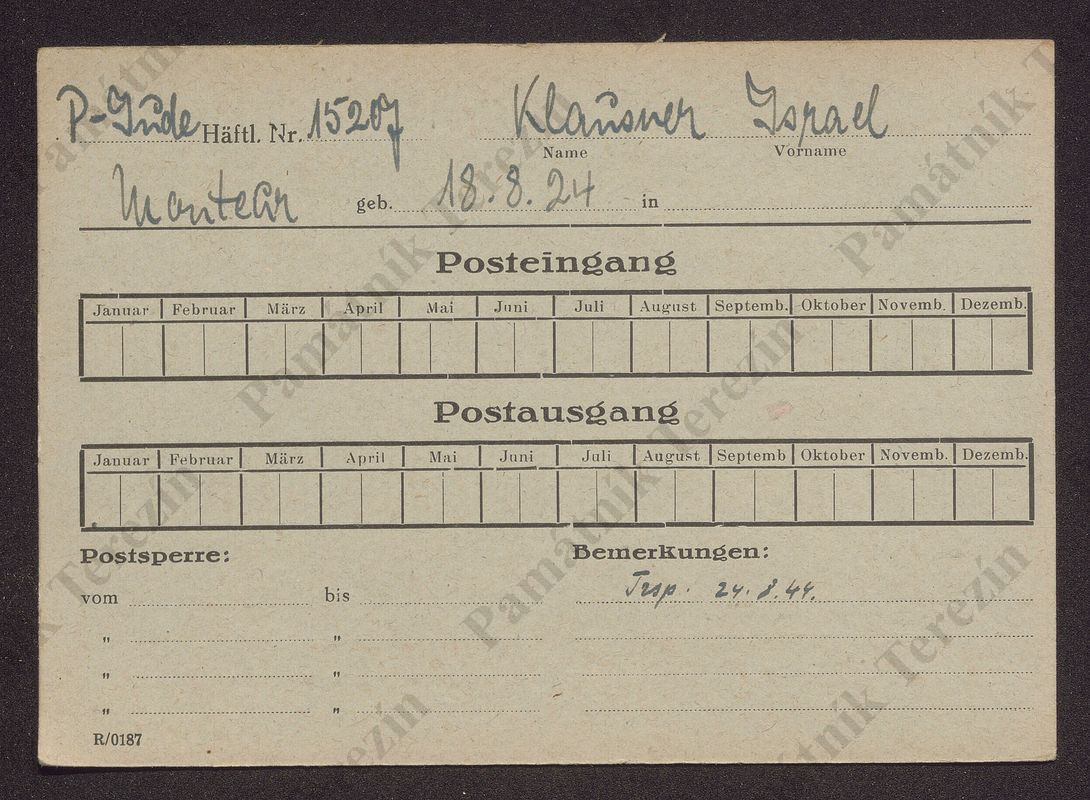 P-Jude Häftl. Nr. 15207 Klausner Israel
Name Vorname
Monteur geb. 18.8.24 in
Posteingang
Januar Februar März April Mai Juni Juli August Septemb. Oktober Novemb. Dezemb.
Postausgang
Januar Februar März April Mai Juni Juli August Septemb Oktober Novemb. Dezemb.
Postsperre: Bemerkungen:
vom bis Trsp. 24.8.44.
" "
" "
" "
R/0187
Památník Terezín